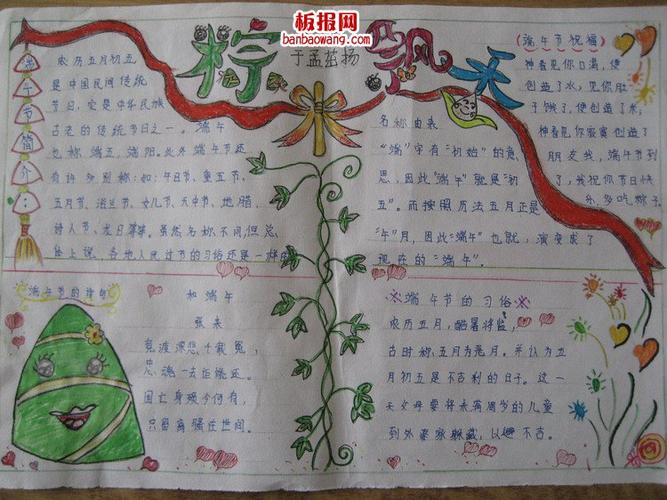 板报网
banbaowang.com
粽飘
于孟茹扬
天
端午节简介:
农历五月初五
是中国民间传统
节日,它是中华民族
古老的传统节日之一。端午
也称端五,端阳。此外端午节还
有许多别称:如:午日节、重五节,
五月节、浴兰节、女儿节、天中节、地腊、
诗人节、龙日等等。虽然名称不同,但总
体上说,各地人民过节的习俗还是一样的
(端午节祝福)
神看见你口渴,便
创造了水,神看见你肚
子饿了,便创造了米,
神看见你寂寞创造了
朋友我,端午节到
了,我祝你节日快
乐,多吃粽子
名称由来
“端”字有“初始”的意
思,因此“端午”就是“初
五”。而按照历法五月正是
“午”月,因此“端午”也就演变成了
现在的“端午”。
端午节的诗句
和端午
张耒
竞渡深悲千载冤,
忠魂一去讵能还。
国亡身殒今何有,
只留离骚在世间。
※端午节的习俗※
农历五月,酷暑将临,
古时称五月为恶月。并认为五
月初五是不吉利的日子。这一
天父母要将未满周岁的儿童
到外婆家躲藏,以避不吉。